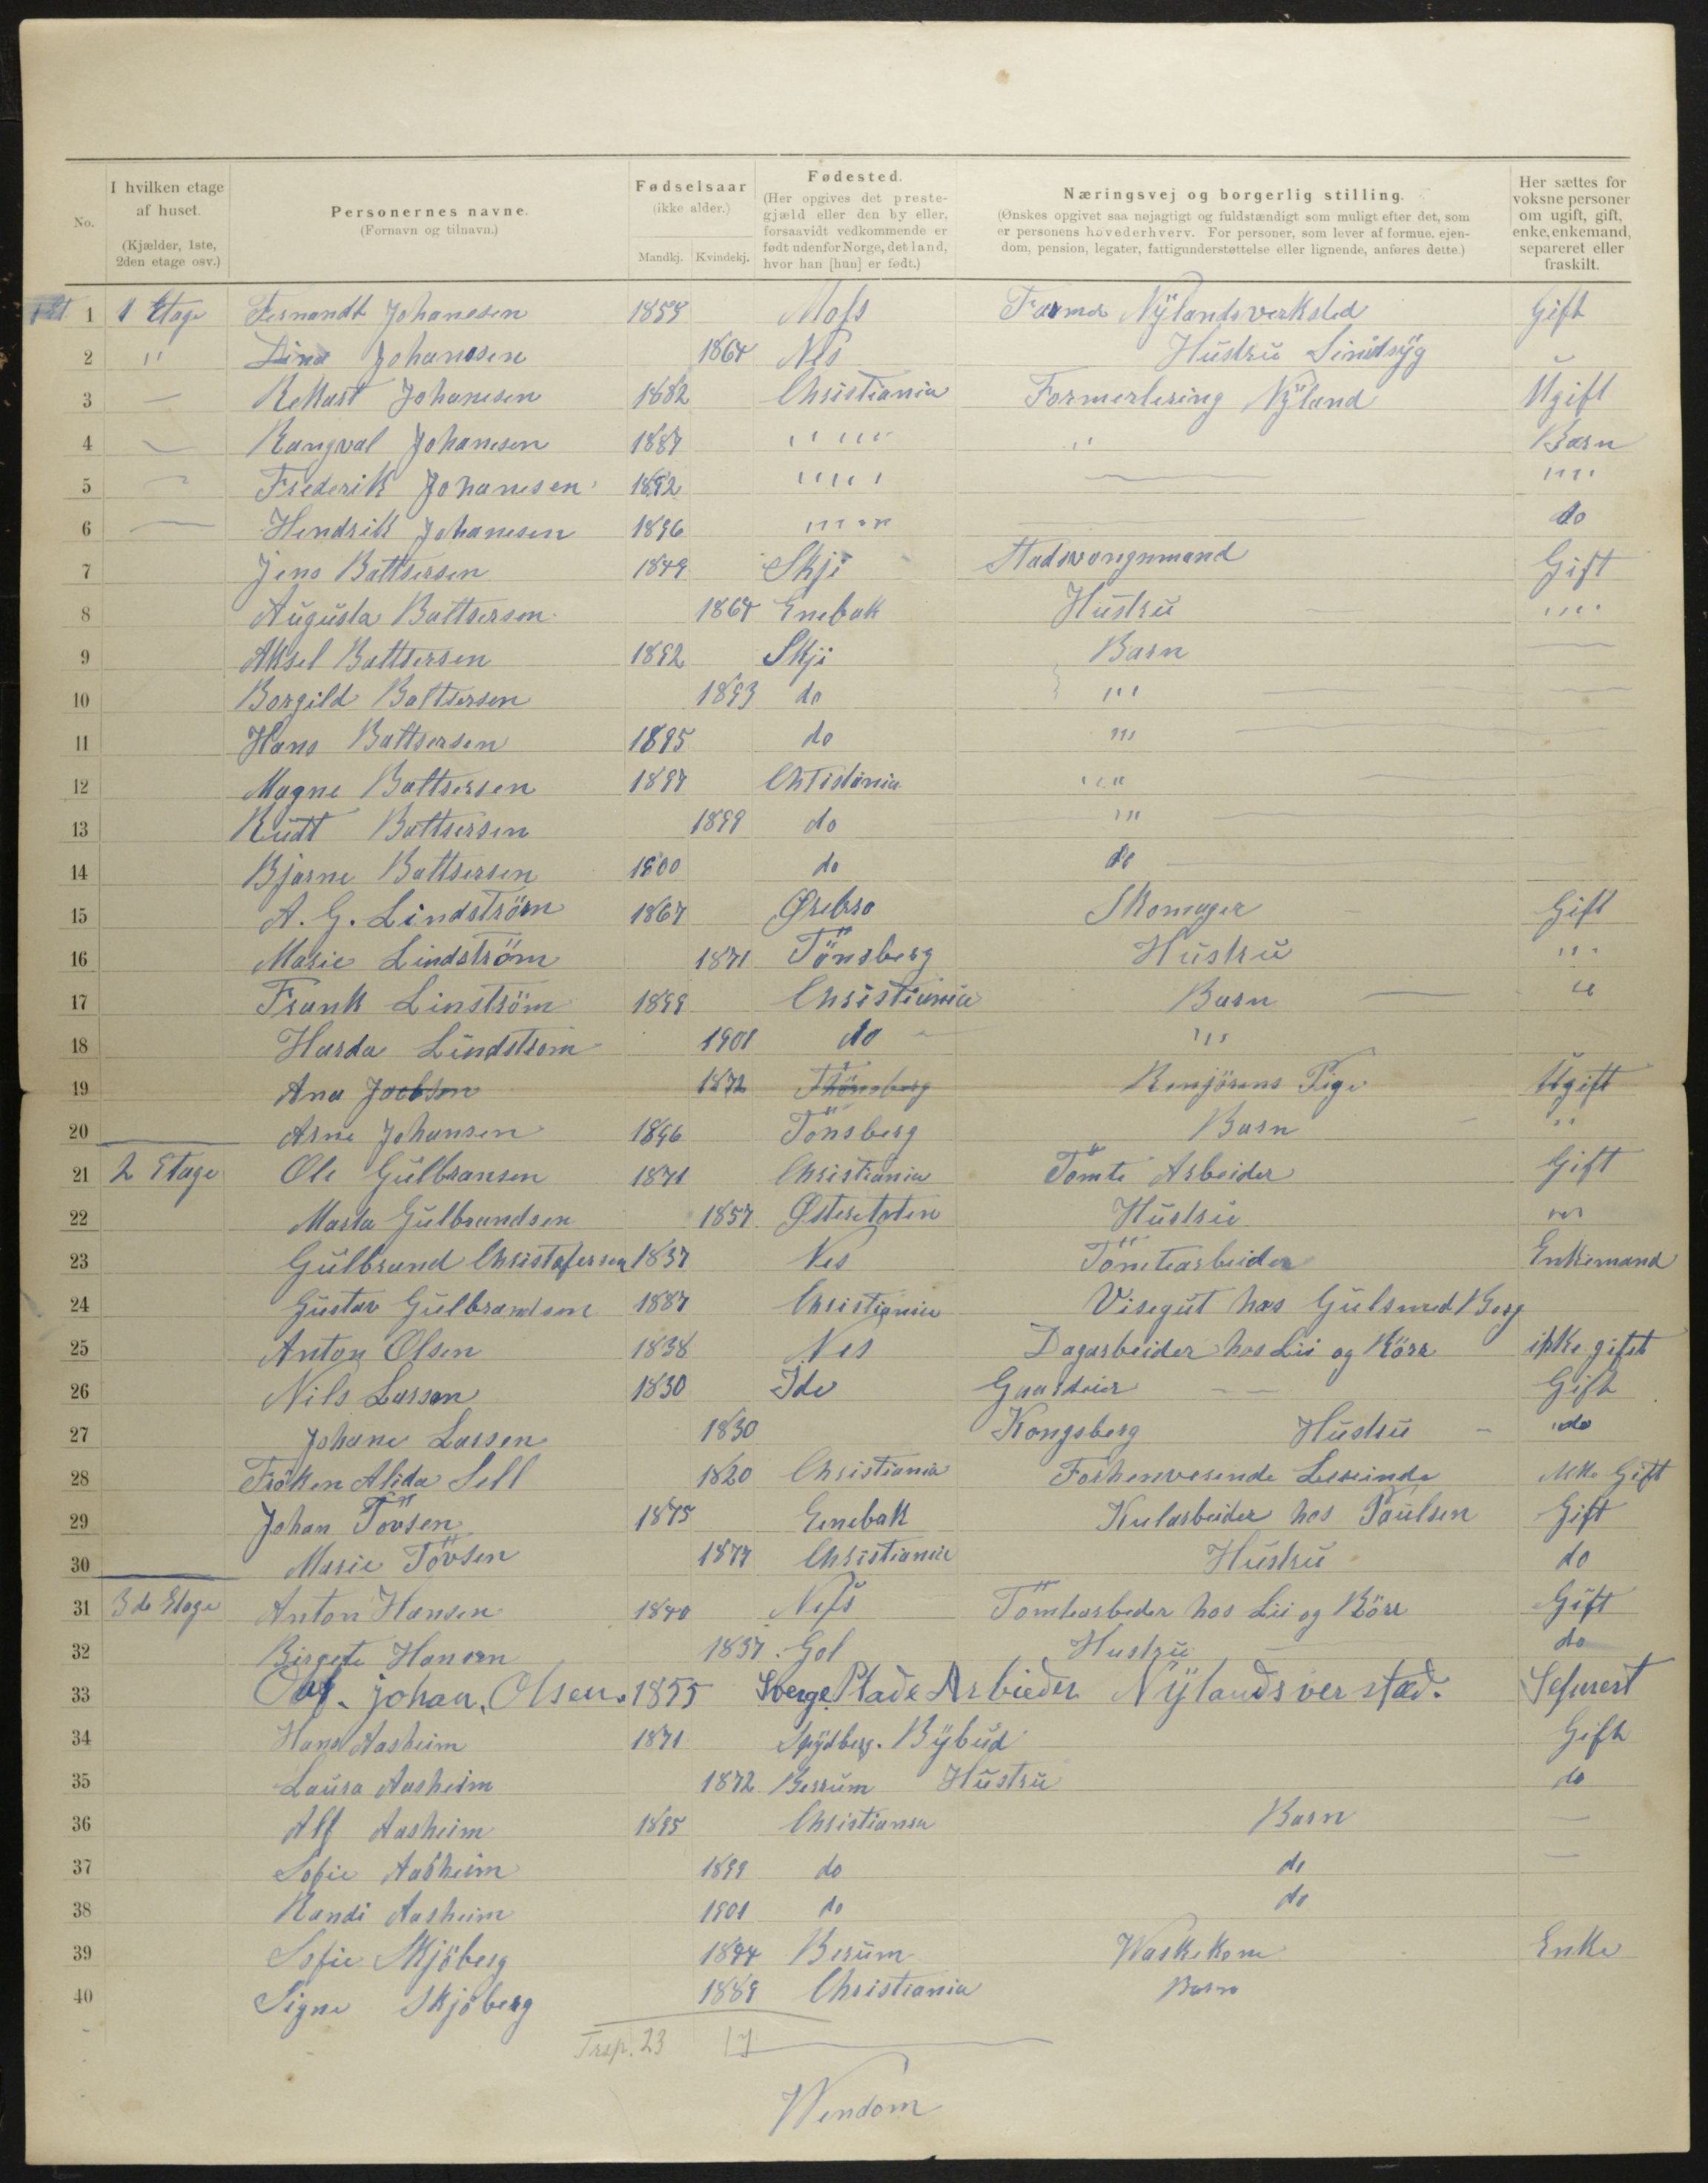 No.
I hvilken etage af huset. (Kjælder, 1ste, 2den etage osv.)
Personernes navne. (Fornavn og tilnavn.)
Fødselsaar (ikke alder.) Mandkj. Kvindekj.
Fødested. (Her opgives det prestegjæld eller den by eller, forsaavidt vedkommende er født udenfor Norge, det land, hvor han [hun] er født.)
Næringsvej og borgerlig stilling. (Ønskes opgivet saa nøjagtigt og fuldstændigt som muligt efter det, som er personens hovederhverv. For personer, som lever af formue, ejendom, pension, legater, fattigunderstøttelse eller lignende, anføres dette.)
Her sættes for voksne personer om ugift, gift, enke, enkemand, separeret eller fraskilt.
1 1 Etage Fernandt Johanesen Moss Former Nÿlandsverksted Gift
2 " Lina Johanesen 1864 Nes Hustru
3 — Johanesen 1882 Christiania Formerlering Nÿland Ugift
4 Rangval Johanesen 1887 " " " Barn
5 Frederik Johanesen 1892 " " — " "
6 — Hendrik Johanesen 1896 " " — do
7 Jens Battsersen 1849 Skji Stadsvongnmand Gift
8 Augusta Battsersen 1864 Enebak Hustru — " "
9 Aksel Battsersen 1892 Skji Barn —
10 Borgild Battsersen 1893 do " — —
11 Hans Battsersen 1895 do " —
12 Magne Battsersen 1897 Chtistania " —
13 Rudt Battsersen 1899 do " —
14 Bjarne Battsersen 1900 do do —
15 A. G. Lindström 1867 Ørebro Skomager Gift
16 Marie Lindström 1871 Tönsberg Hustru "
17 Frank Linström 1899 Christiania Barn — "
18 Harda Lindstrom 1901 do "
19 Ana Jacobson 1872 Renjörens Pige Ugift
20 Arne Johansen 1896 Tönsberg Barn "
21 2 Etage Ole Gulbransen 1871 Christiania Tomte Arbeider Gift
22 Marta Gulbrandsen 1857 Østeretoten Hustru "
23 Gulbrand Christofersen 1837 Nes Tömtearbeider Enkemand
24 Gustav Gulbrandsen 1887 Christiania Visegut hos Gulsmed Berg
25 Anton Olsen 1838 Nes Dagarbeider hos Lii og Körr ikke gifet
26 Nils Larsen 1830 Ide Gaardeier — Gift
27 Johane Larsen 1830 Kongsberg Hustru — do
28 Fröken Alida Sell 1820 Christiania Forhenverende Lererinde Gift
29 Johan Tövsen 1875 Enebak Kularbeider hos Paulsen Gift
30 Marie Tövsen 1877 Christiania Hustru do
31 3de Etage Anton Hansen 1840 Ness Tömtearbeder hos Lii og Körr Gift
32 Birgete Hansen 1837 Gol Hustru do
33 Johan, Olsen. 1855 Sverge Plade Arbieder Nÿlandsverstad. Sepurert
34 Hans Aasheim 1871 Spÿdberg. Bÿbud Gift
35 Laura Aasheim 1872 Berrum Hustru do
36 Alf Aasheim 1895 Christiania Barn —
37 Sofie Aasheim 1899 do do —
38 Randi Aasheim 1901 do do
39 Sofie Skjöberg 1844 Berum Waskekone Enke
40 Signe Skjöberg 1889 Christiania Barn
Trsp. 23 17
Wendom